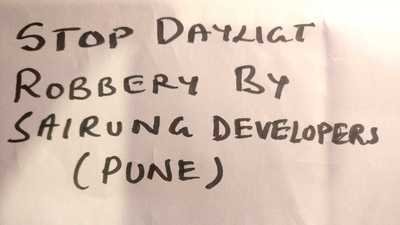 STOP DAYLIGT
ROBBERY BY
SAIRUNG DEVELOPERS
(PUNE)